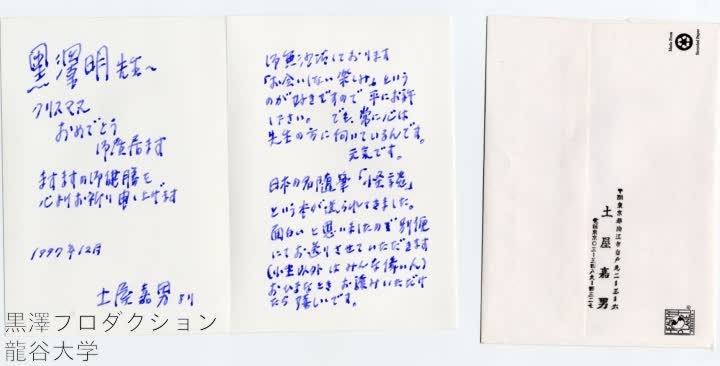 黒澤明先生へ
クリスマス
おめでとう
御座居ます
ますますの御健勝を
心よりお祈り申し上げます
1997年12月
土屋嘉男より
御無沙汰しております
「お会いしない楽しみ」という
のが好きですので平にお許
し下さい。でも、常に心は
先生の方に向いているんです。
元気です。
日本の名随筆「怪談」
という本が送られてきました。
面白いと思いましたので別便
にてお送りさせていただきます
(小生以外はみんな偉い人)
おひまなときお読みいただけ
たら嬉しいです。
土屋嘉男
黒澤プロダクション
龍谷大学